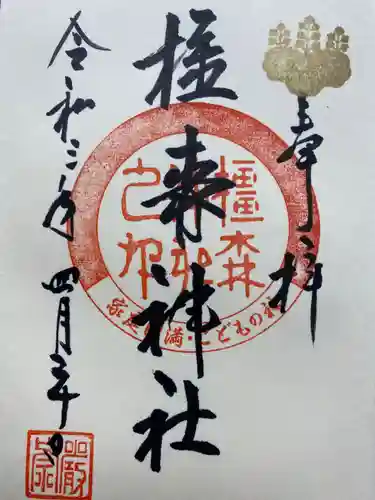 奉拝
橿森神社
令和三年四月三十日
橿森神社之印
家庭円満・こどもの社